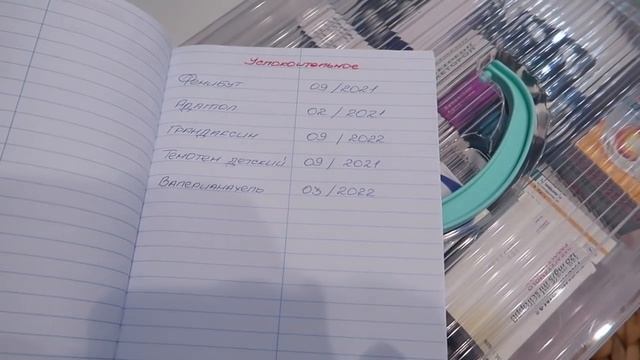 Успокоительное
Фенибут 09/2021
Адаптол 02/2021
Грандаксин 09/2022
Тенотен детский 09/2021
Валерианахель 03/2022